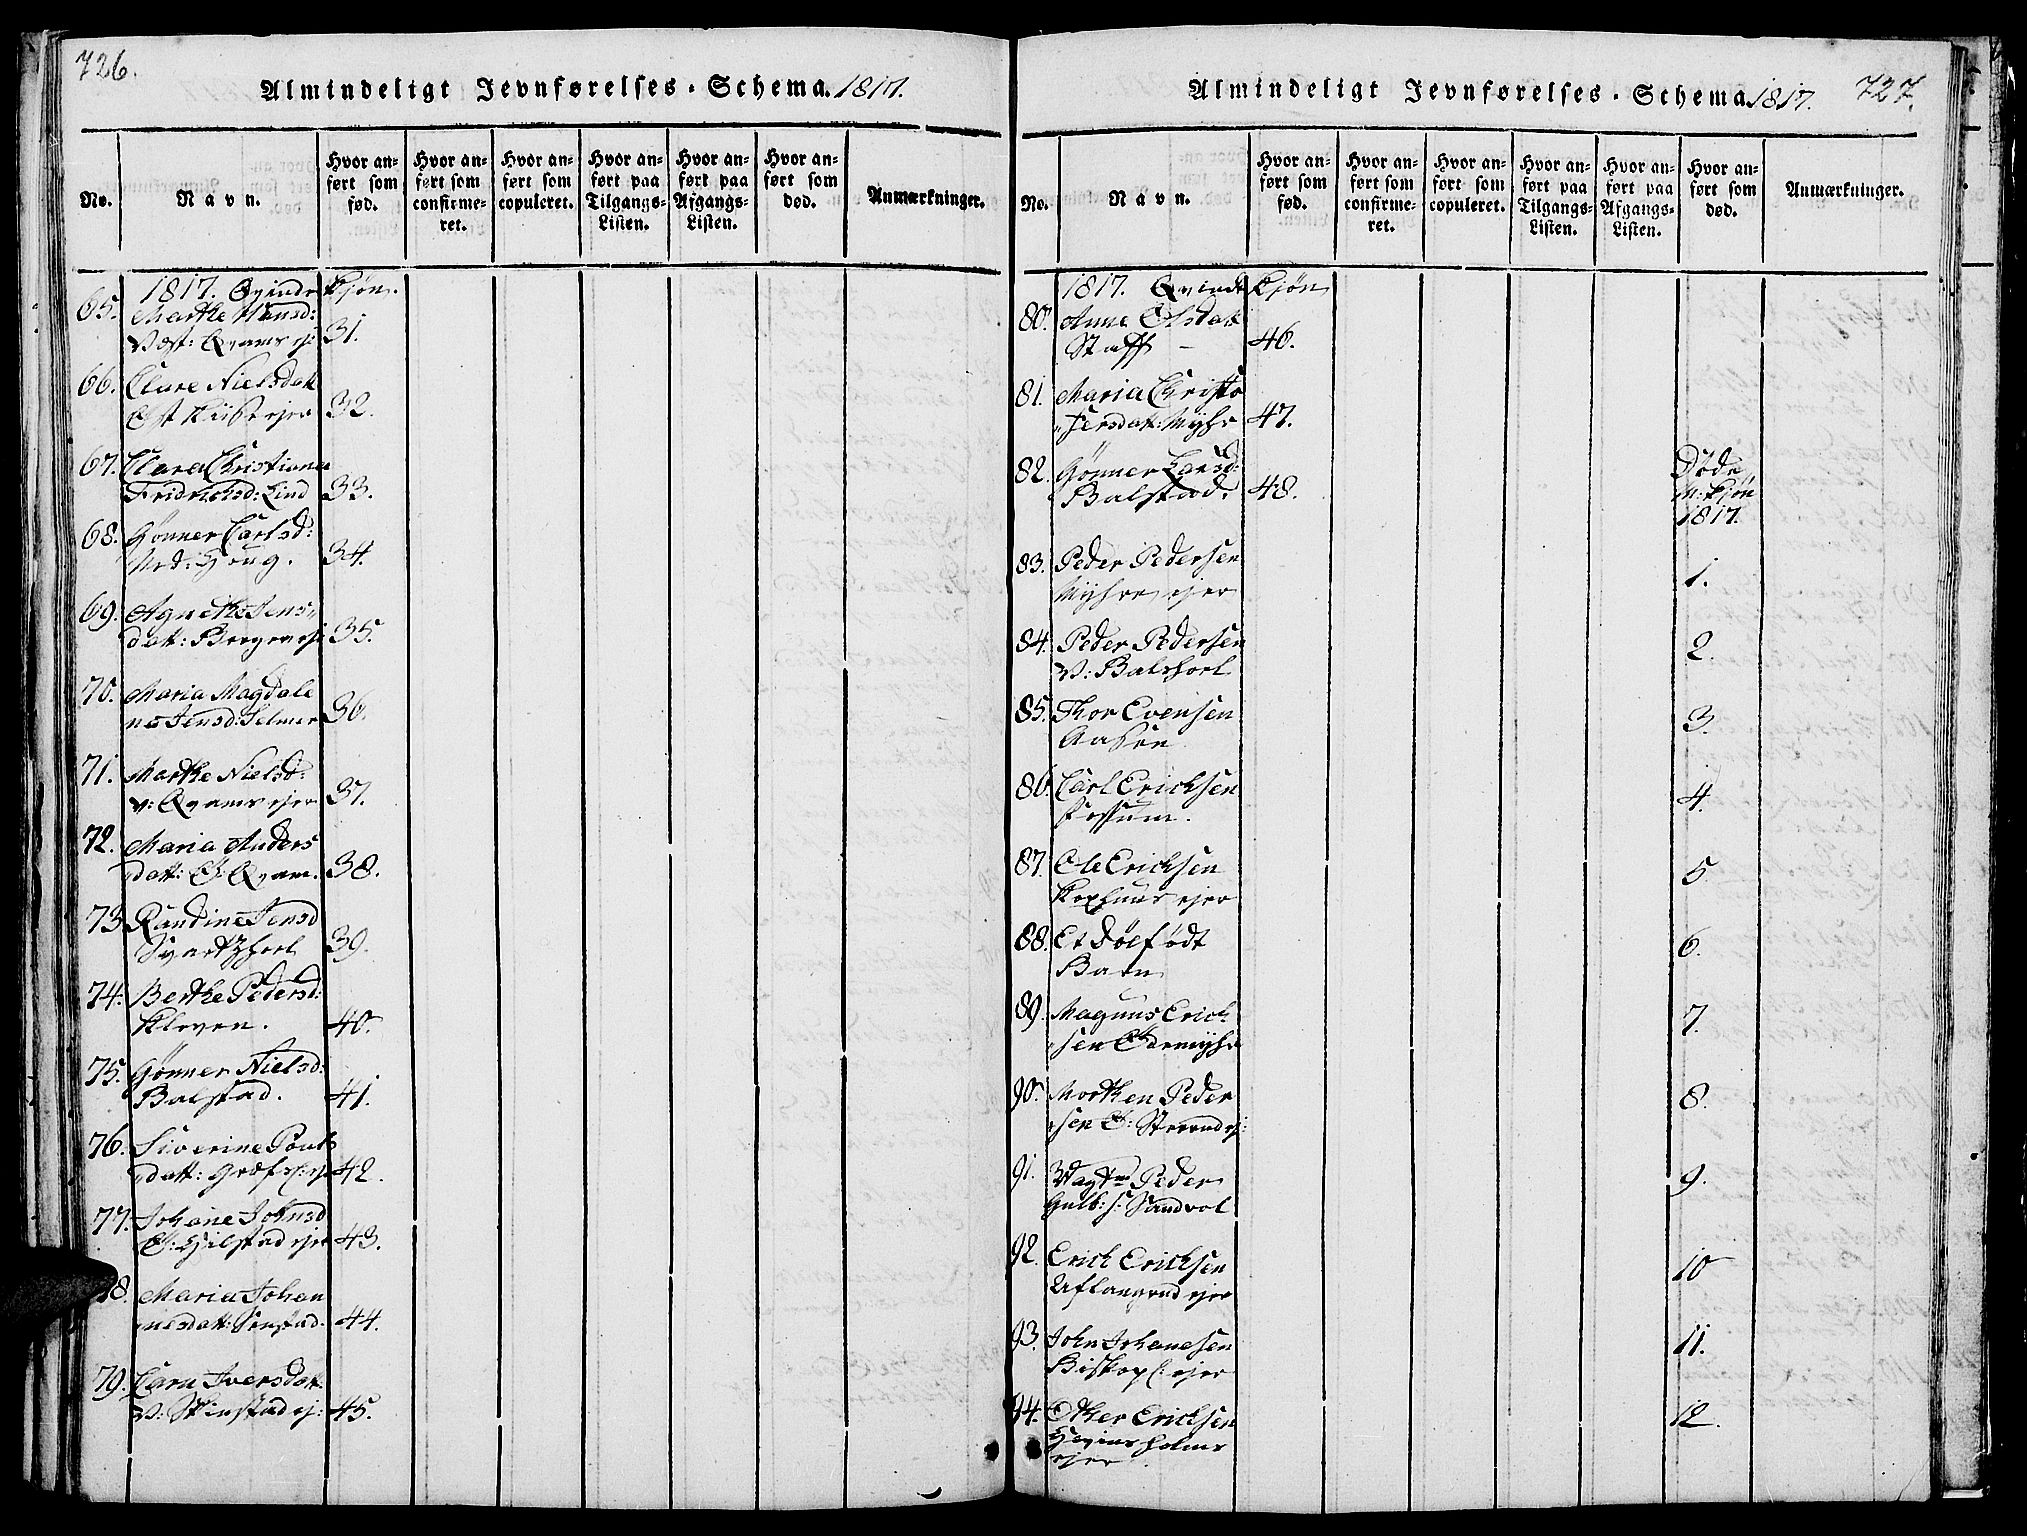 726.
Almindeligt Jevnførelses-Schema. 1817.
No.
Navn.
Hvor an-
ført som
fød.
Hvor an-
ført som
confirme-
ret.
Hvor an-
ført som
copuleret.
Hvor an-
ført paa
Tilgangs-
Listen.
Hvor an-
ført paa
Afgangs-
Listen.
Hvor an-
ført som
død.
Anmærkninger.
1817. Qvinde kjøn.
65. Marthe Hansd:
Vest: Qvams ej: 31.
66. Clare Nielsdatt
Øst ejer 32.
67. Clara Christiana
Fridrichsd: Lind 33.
68. Gønner Carlsd:
Ned: Houg. 34.
69. Agnethe Jens
datt: ej 35.
70. Maria Magdale
na Jensd: Selmer 36.
71. Marthe Nielsd:
v: Qvams ejer 37.
72. Maria Anders
datt: Ø: Qvam. 38.
73 Randine Jensd
39.
74. Berthe Pedersd:
Kleven. 40.
75. Gønner Nielsd:
Balstad. 41.
76. Siverine Pouls
datt: 42.
77. Johane Johnsd
Ø: Hilstad ejer 43.
78. Maria Johan
nesdatt: 44.
79. Carn Iversdatt
V: ej: 45.
Almindeligt Jevnførelses-Schema 1817. 727.
No.
Navn.
Hvor an-
ført som
fød.
Hvor an-
ført som
confirme-
ret.
Hvor an-
ført som
copuleret.
Hvor an-
ført paa
Tilgangs-
Listen.
Hvor an-
ført paa
Afgangs-
Listen.
Hvor an-
ført som
død.
Anmærkninger.
1817. Qvinde kjøn
80. Anne Olsdatt
Staff 46.
81. Maria Christo
fersdatt: Myhr 47.
82. Gønner Larsd:
Balstad. 48.
Døde
M: kjøn
1817.
83. Peder Pedersen
Myhre ejer 1.
84. Peder Pedersen
V: Balshoel 2.
85. Thor Evensen
Aasen 3.
86. Carl Erichsen
Fossum. 4.
87. Ole Erichsen
ejer 5
88. Et Dødfødt
Barn 6.
89. Magnus Erich
sen 7.
90. Morthen Peder
sen Ø: ej: 8.
91. Peder
Gulb: s: Sandvol 9.
92. Erich Erichsen
ejer 10
93. John Johanesen
Biskop l: ejer 11.
94. Other Erichsen
ejer. 12.